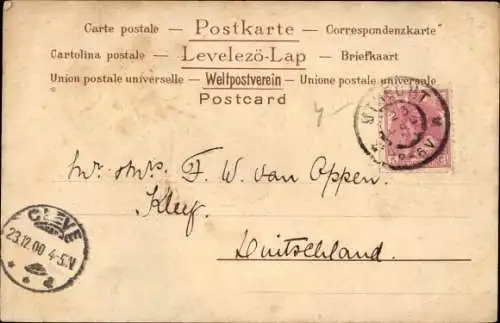 Carte postale — Postkarte — Correspondenzkarte
Cartolina postale — Levelező-Lap — Briefkaart
Union postale universelle — Weltpostverein — Unione postale universale
Postcard
UTRECHT
F. W. van Oppen.
Kleef.
Duitschland.
CLEVE
23.12.00 4-5.N